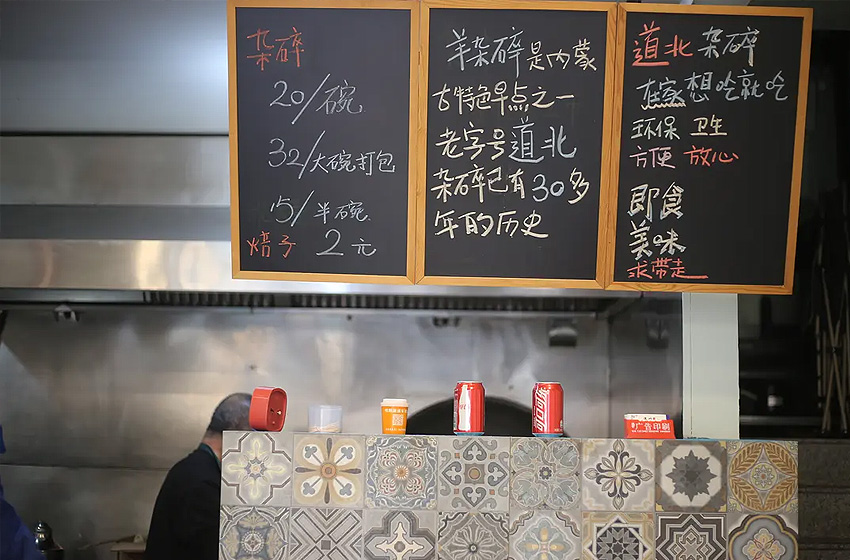 杂碎
20/碗
32/大碗打包
15/半碗
焙子 2元
羊杂碎是内蒙
古特色早点之一
老字号道北
杂碎已有30多
年的历史
道北杂碎
在家想吃就吃
环保 卫生
方便 放心
即食
美味
求带走
可口可乐
广告印刷